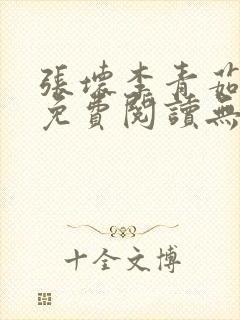 張壞李青茹
免費閱讀無
十全文博